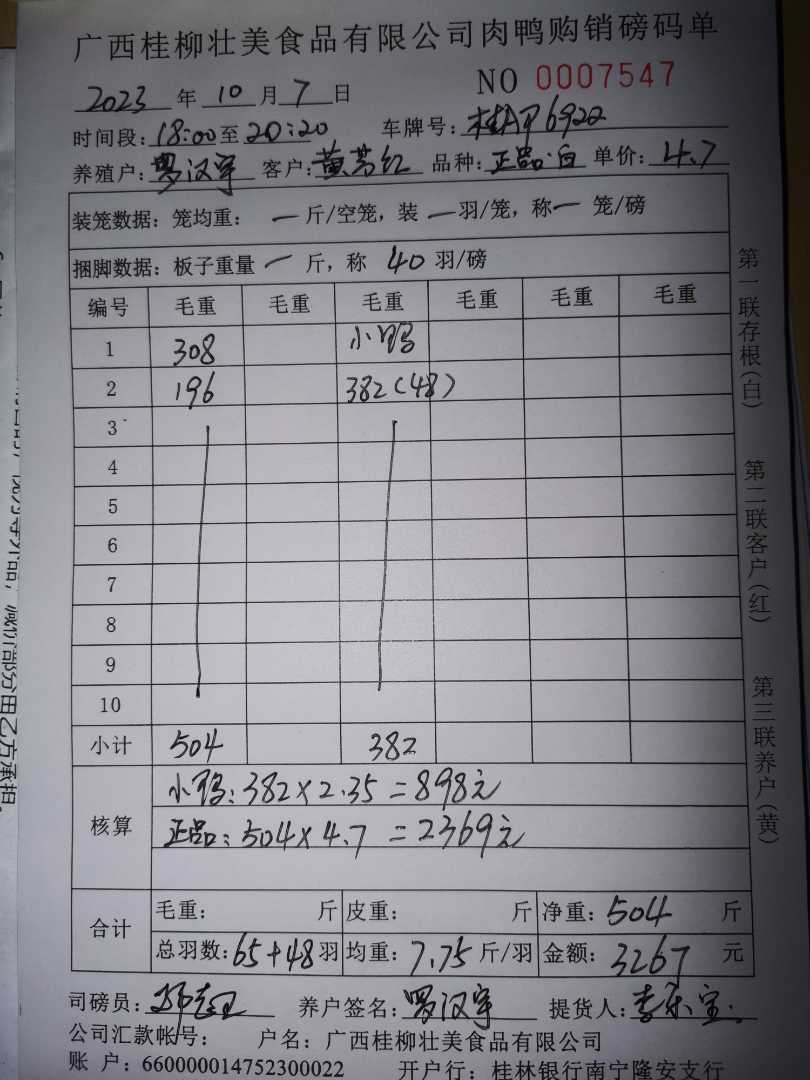 广西桂柳壮美食品有限公司肉鸭购销磅码单
2023年10月7日 NO 0007547
时间段:18:00至20:20 车牌号:桂AP6922
养殖户:罗汉宇 客户:黄芳红 品种:正品·白 单价:4.7
装笼数据:笼均重:一斤/空笼,装一羽/笼,称一笼/磅
捆脚数据:板子重量一斤,称40羽/磅
编号 毛重 毛重 毛重 毛重 毛重 毛重
1 308 小鸭
2 196 382(48)
3
4
5
6
7
8
9
10
小计 504 382
核算 小鸭:382×2.35=898元
正品:504×4.7=2369元
合计 毛重: 斤 皮重: 斤 净重:504斤
总羽数:65+48羽 均重:7.75斤/羽 金额:3267元
司磅员: 养户签名:罗汉宇 提货人:李乐宝
公司汇款帐号: 户名:广西桂柳壮美食品有限公司
账 户:660000014752300022 开户行:桂林银行南宁隆安支行
第一联存根(白) 第二联客户(红) 第三联养户(黄)
减价部分由乙方承担。